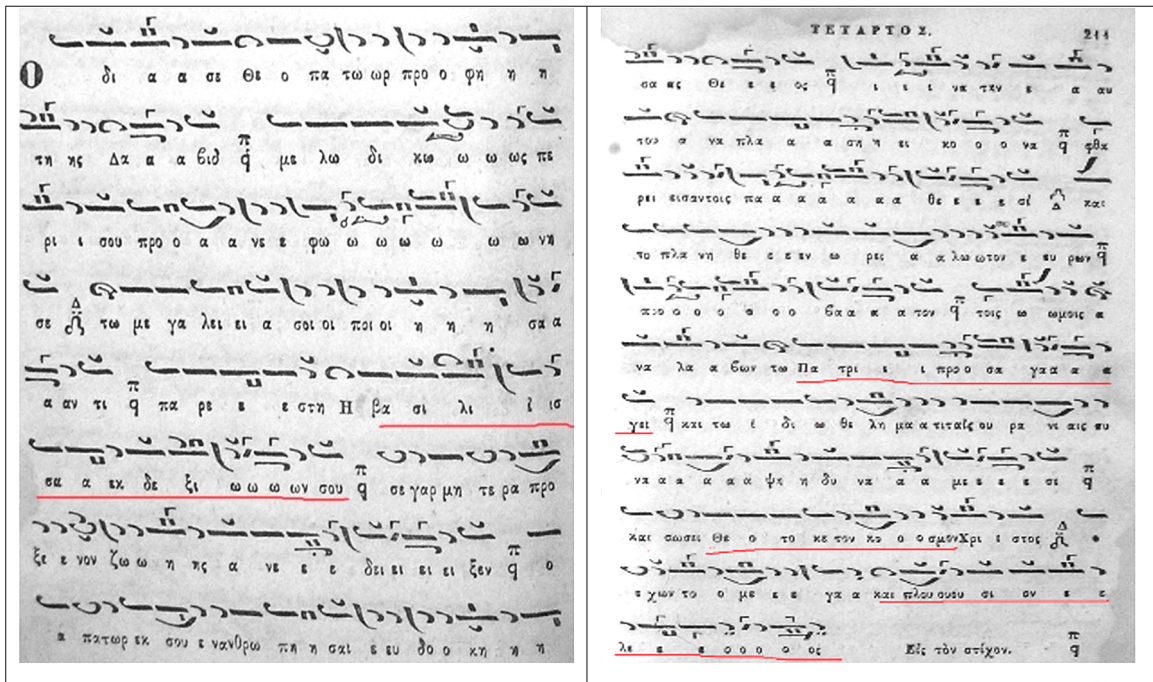 Ο δι α α σε Θε ο πα τω ωρ προ ο φη η η
τη ης Δα α α βιδ π q με λω δι κω ω ω ως πε
ρι ι σου προ ο α α νε ε φω ω ω ω ω ω ω νη
σε Δ τω με γα λει ει α σοι οι ποι οι η η η σα α
α αν τι π q πα ρε ε ε στη Η βα σι λι ι ισ
σα α εκ δε ξι ω ω ω ων σου π q σε γαρ μη τε ρα προ
ξε ε νον ζω ω η ης α νε ε ε δει ει ει ει ξεν π q ο
α πατωρ εκ σου ε νανθρω πη η σαι ε ευ δο ο κη η η
ΤΕΤΑΡΤΟΣ. 211
σα ας Θε ε ε ος π q ι ει ι να την ε α αυ
του α να πλα α α ση η ει κο ο ο να π q φθα
ρει εισαντοις πα α α α α α α θε ε ε ε σί Δ και
το πλα νη θε ε ε εν ω ρει α α λω ωτον ε ευ ρων π q
ο ο ο ο ο ο βα α α α τον π q τοις ω ωμοις α
να λα α βων τω Πα τρι ι ι προ ο σα γα α α α
γει π q και τω ι δι ω θε λη μα α τι ταίς ου ρα νι αις συ
να α α α α α ψη η δυ να α α με ε ε ε σι π q
και σωσει Θε ο το κε τον κο ο ο σμον Χρι ι στος Δ ο
ε χων το ο με ε ε γα α και πλου ουσυ σι ον ε ε
λε ε ε ε ο ο ο ο ος Εἰς τὸν στίχον. π q